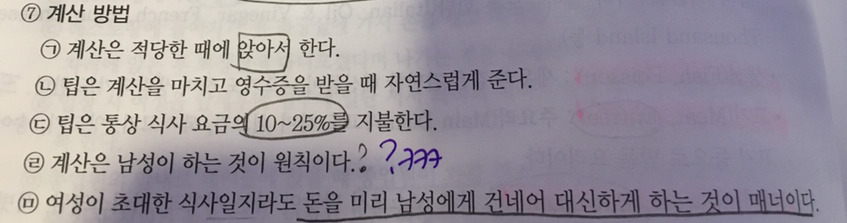 ⑦ 계산 방법
㉠ 계산은 적당한 때에 앉아서 한다.
㉡ 팁은 계산을 마치고 영수증을 받을 때 자연스럽게 준다.
㉢ 팁은 통상 식사 요금의 10~25%를 지불한다.
㉣ 계산은 남성이 하는 것이 원칙이다.? ?ㅋㅋㅋ
㉤ 여성이 초대한 식사일지라도 돈을 미리 남성에게 건네어 대신하게 하는 것이 매너이다.